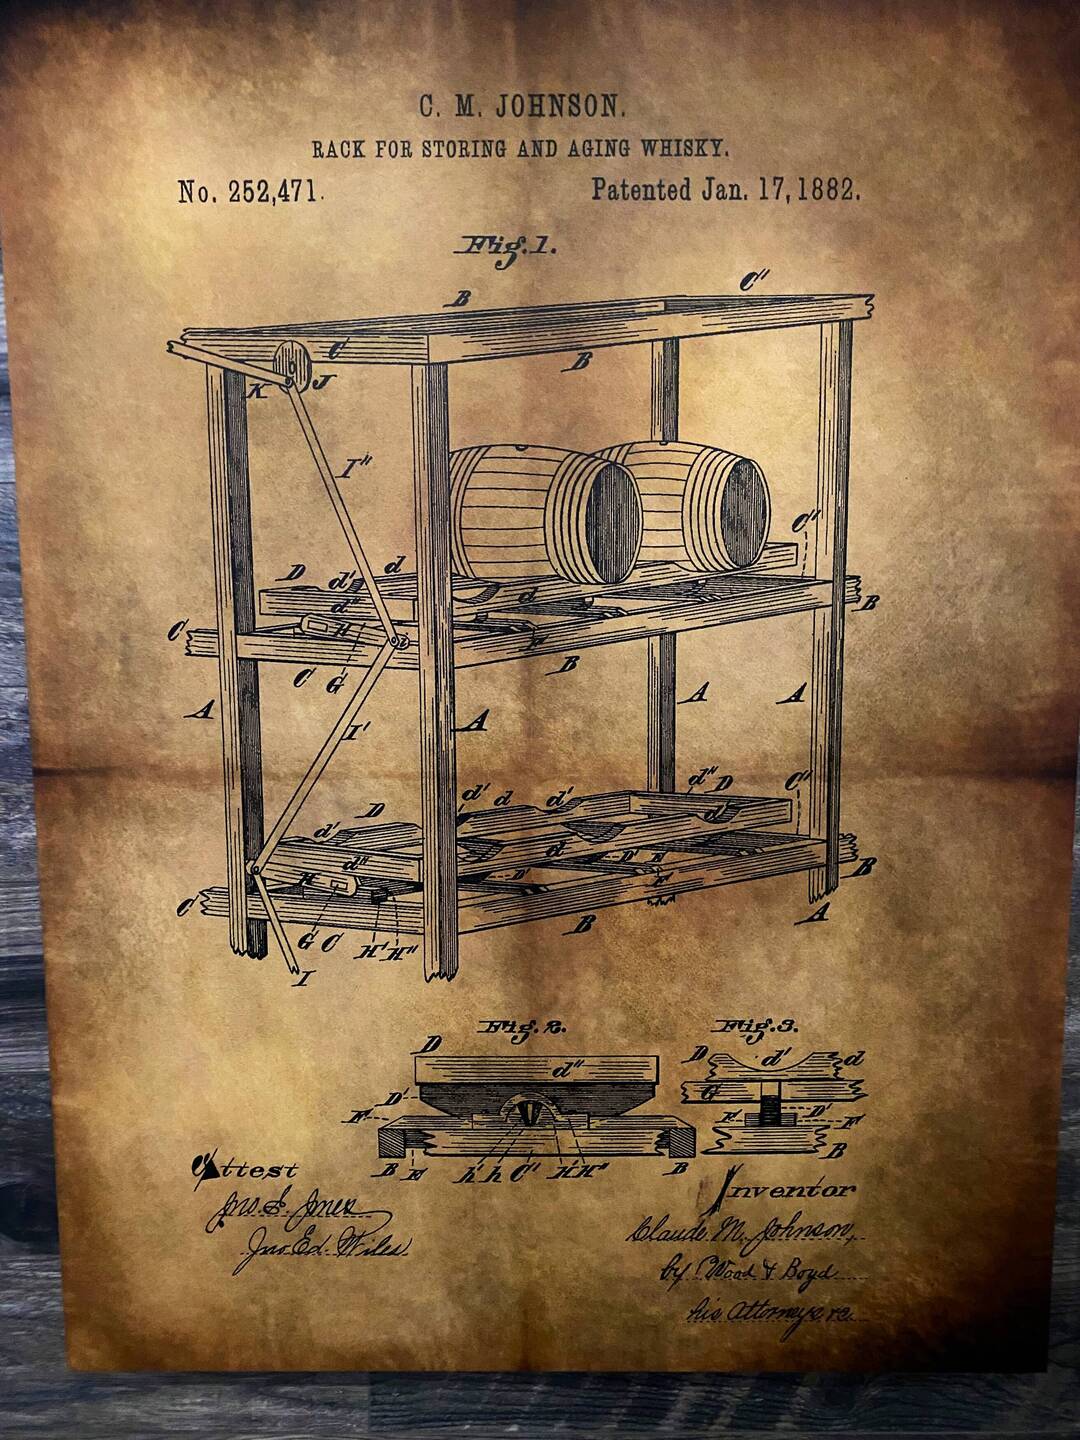 C. M. JOHNSON.
RACK FOR STORING AND AGING WHISKY.
No. 252,471. Patented Jan. 17, 1882.
Fig. 1.
B C''
B
C
K J
I''
C'
D d' d
d'' d
H F B
C
C G B
A A A A
I'
d'' D C'
d' d d'
D d
d' d
d'' D' E
H D' F B
C B A
G C H' H''
I
Fig. 2. Fig. 3.
D d'' D d' d
D' G
F F D' F
B E h' h C' H' H'' B B
Attest Inventor
Jno. S. Jones Claude M. Johnson,
Jno. Ed. Wiles. by Wood & Boyd
his Attorneys, &c.